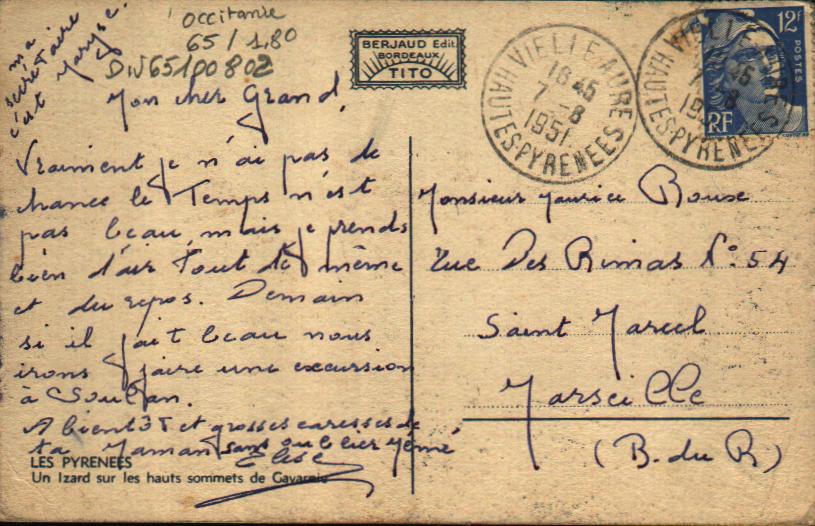 ma
secretaire
c'est Maryse.
Occitanie
65 / 1,80
DW65100802
BERJAUD Edit.
BORDEAUX
TITO
VIELLE AURE
18 45
7 - 8
1951
HAUTES-PYRENEES
VIELLE AURE
45
7 - 8
HAUTES-PYRENEES
12F
POSTES
RF
Mon cher Grand,
Vraiment je n'ai pas de
chance le Temps n'est
pas beau, mais je prends
bien d'air Tout de même
et du repos. Demain
si il fait beau nous
irons faire une excursion
à
A bientôt et grosses caresses de
ta Maman sans oublier Mémé
Elise
Monsieur Maurice Roux
Rue Des Rimas N°: 54
Saint Marcel
Marseille
(B. du R)
LES PYRENEES
Un Izard sur les hauts sommets de Gavarnie